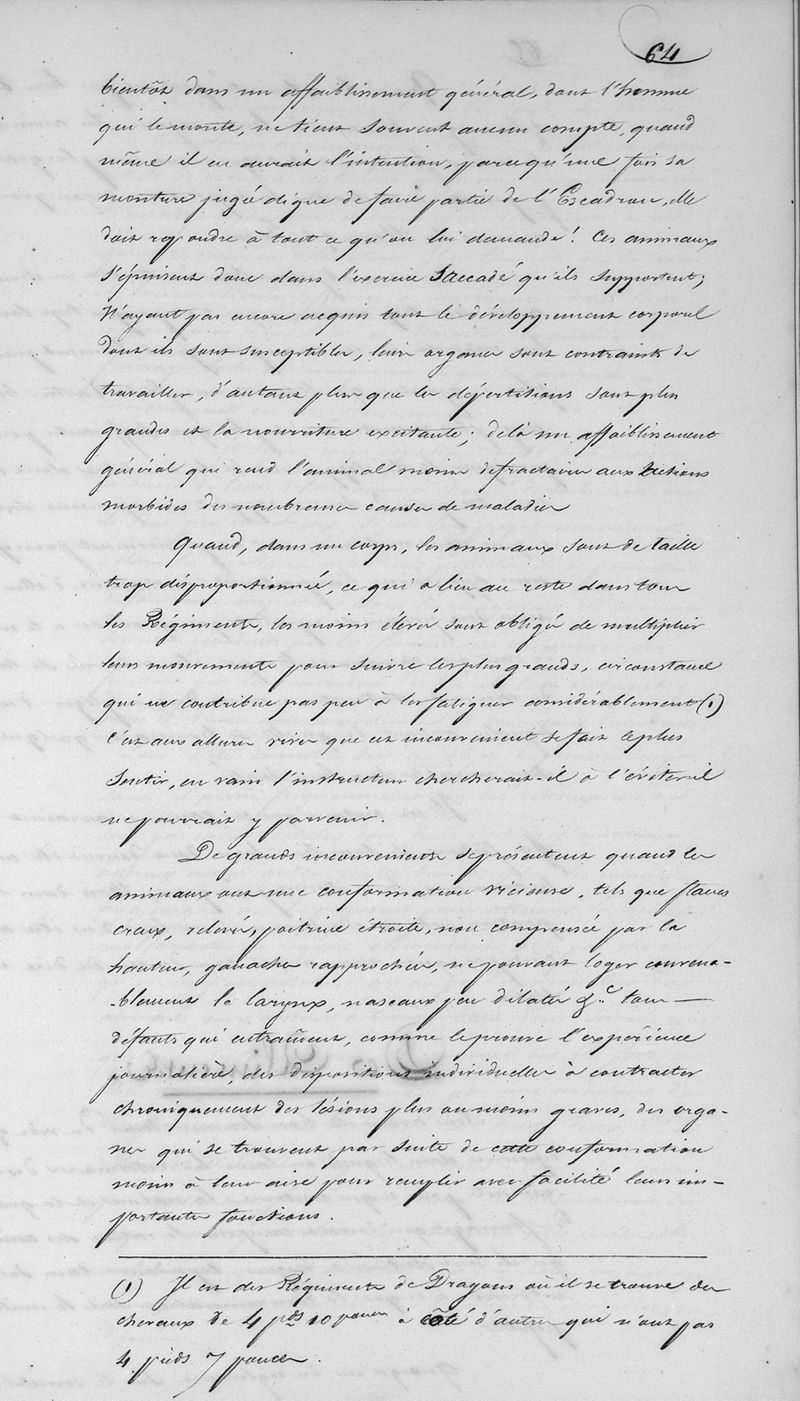 64
bientôt dans un affaiblissement général, dont l'homme
qui le monte, ne tient souvent aucun compte, quand
même il en aurait l'intention, parcequ'une fois sa
monture jugée digne de faire partie de l'Escadron, elle
doit repondre à tout ce qu'on lui demande! Ces animaux
s'épuisent donc dans l'exercice saccadé qu'ils supportent;
N'ayant pas encore acquis tout le développement corporel
dont ils sont susceptibles, leurs organes sont contraints de
travailler, d'autant plus que les dépertitions sont plus
grandes et la nourriture excitante; delà un affaiblissement
général qui rend l'animal moins refractaire aux actions
morbides des nombreuses causes de maladies
Quand, dans un corps, les animaux sont de taille
trop disproportionnée, ce qui a lieu au reste dans tous
les Régiments, les moins élevés sont obligés de multiplier
leurs mouvements pour suivre les plus grands, circonstance
qui ne contribue pas peu à les fatiguer considérablement (1)
c'est aux allures vives que cet inconvenient se fait le plus
sentir, en vain l'instructeur chercherait-il à l'éviter il
ne pourrait y parvenir.
De grands inconvenients se présentent quand les
animaux ont une conformation vicieuse, tels que flancs
creux, relevés, poitrine étroite, non compensée par la
hauteur, ganaches rapprochées, ne pouvant loger convena-
-blement le larynx, naseaux peu dilatés &c. tous
défauts qui entraînent, comme le prouve l'expérience
journalière, des dispositions individuelles à contracter
chroniquement des lésions plus ou moins graves, des orga-
nes qui se trouvent par suite de cette conformation
moins à leur aise pour remplir avec facilité leurs im-
portantes fonctions.
(1) Il est des Régiments de Dragons où il se trouve des
chevaux de 4 pds 10 pouces à côté d'autres qui n'ont pas
4 pieds 7 pouces.